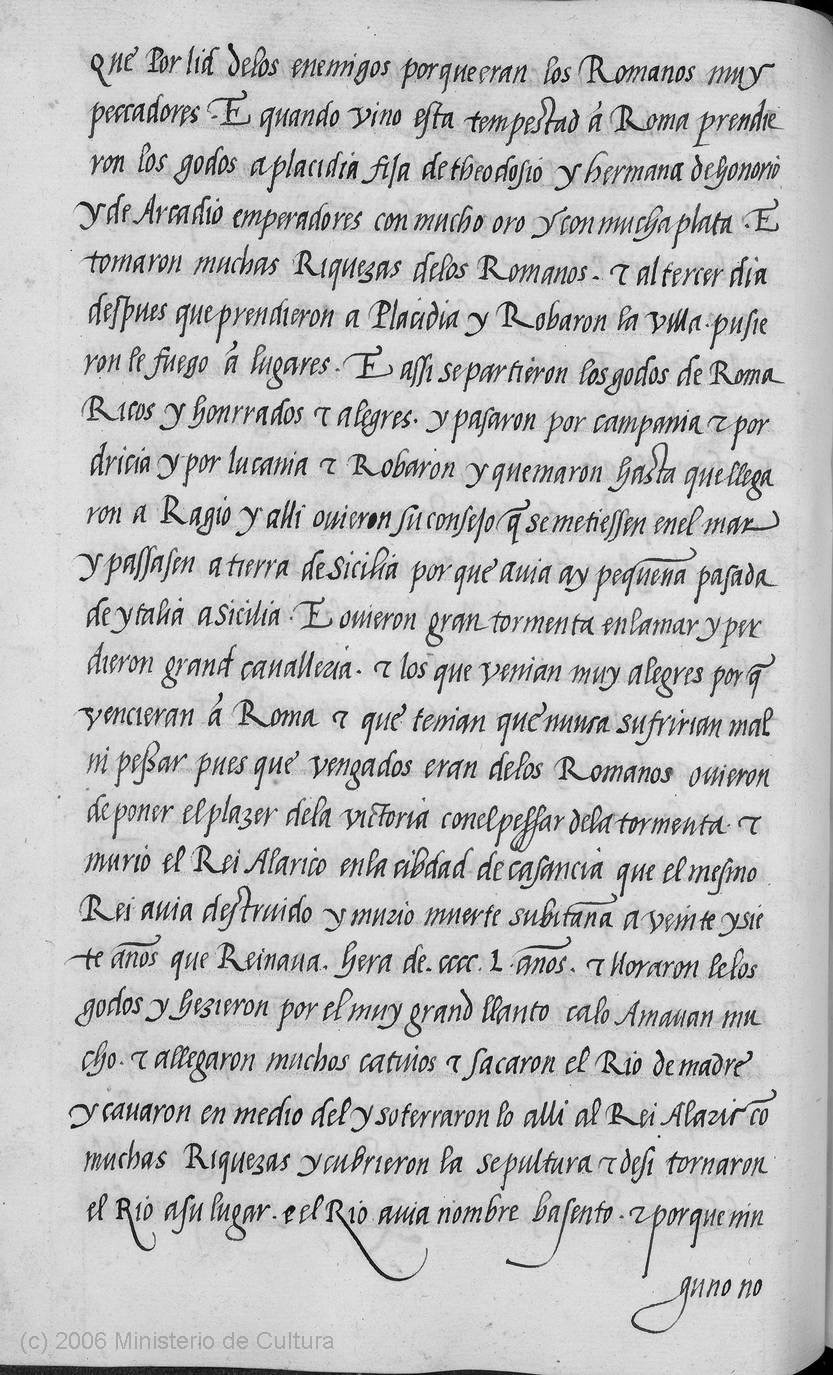 que Por lid delos enemigos porque eran los Romanos muy
peccadores. E quando vino esta tempestad á Roma prendie
ron los godos a placidia fija de theodosio y hermana de honorio
y de Arcadio emperadores con mucho oro y con mucha plata. E
tomaron muchas Riquezas delos Romanos. τ al tercer dia
despues que prendieron a Placidia y Robaron la villa. pusie
ron le fuego á lugares. E assi se partieron los godos de Roma
Ricos y honrrados τ alegres. y pasaron por campania τ por
dricia y por lucania τ Robaron y quemaron hasta que llega
ron a Ragio y alli ovieron su consejo q̃ se metiessen enel mar
y passasen a tierra de Sicilia por que avia ay pequeña pasada
de ytalia a Sicilia. E ovieron gran tormenta en la mar y per
dieron grand cavalleria. τ los que venian muy alegres por q̃
vencieran á Roma τ que tenian que nunca sufririan mal
ni pessar pues que vengados eran delos Romanos ovieron
de poner el plazer dela victoria con el pessar dela tormenta. τ
murio el Rei Alarico en la cibdad de casancia que el mesmo
Rei avia destruido y murio muerte subitaña a veinte y sie
te años que Reinava. hera de. cccc. L. años. τ lloraron le los
godos y hezieron por el muy grand llanto calo Amavan mu
cho. τ allegaron muchos cativos τ sacaron el Rio de madre
y cavaron en medio del y soterraron lo alli al Rei Alaric cõ
muchas Riquezas y cubrieron la sepultura τ desi tornaron
el Rio a su lugar. e el Rio avia nombre basento. τ porque nin
guno no
(c) 2006 Ministerio de Cultura